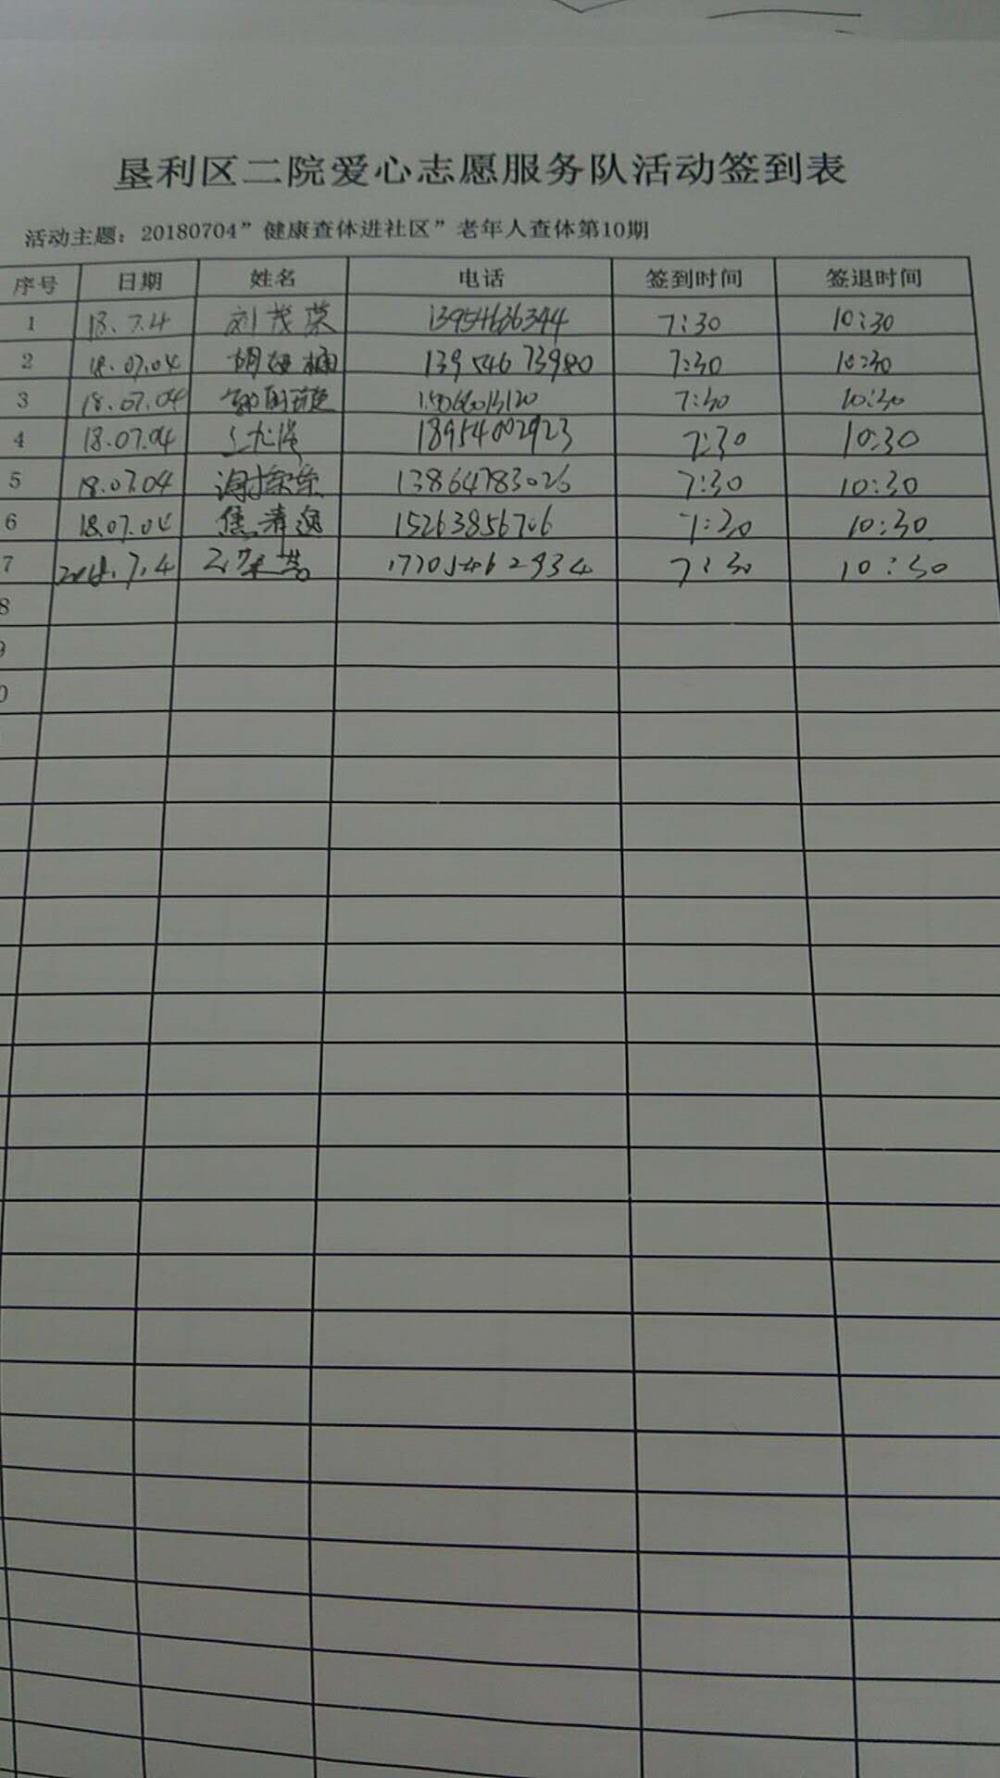 垦利区二院爱心志愿服务队活动签到表
活动主题：20180704”健康查体进社区”老年人查体第10期
序号 日期 姓名 电话 签到时间 签退时间
1 18.7.4 刘茂荣 13954636344 7:30 10:30
2 18.07.04 胡 楠 13954673980 7:30 10:30
3 18.07.04 15066013120 7:30 10:30
4 18.07.04 18954002923 7:30 10:30
5 18.07.04 13864783026 7:30 10:30
6 18.07.04 焦清逸 15263856706 7:30 10:30
7 2018.7.4 17705462934 7:30 10:30
8
9
0